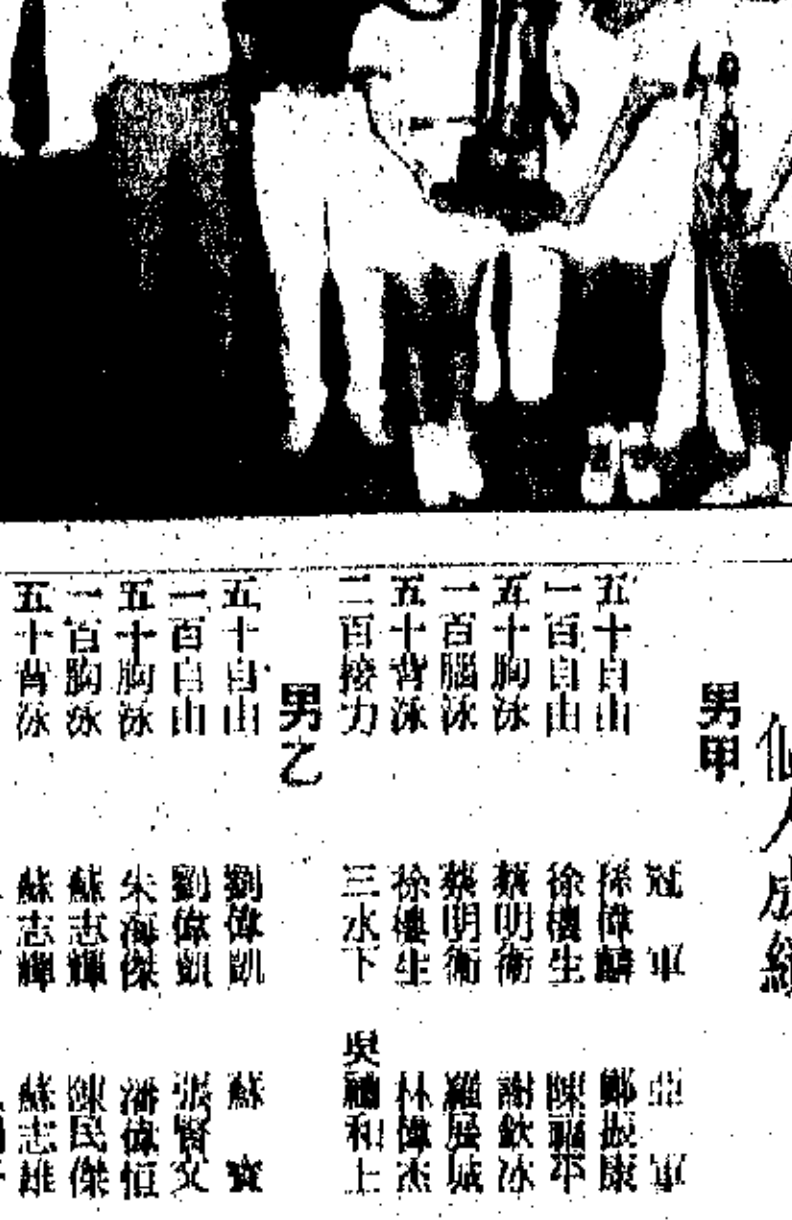 個人成績
男甲
冠軍 亞軍
五十自由 孫偉麟 鄭振康
一百自由 徐樓生 陳福平
五十胸泳 蔡明衛 謝欽冰
一百腦泳 蔡明衛 羅展城
五十背泳 徐樓生 林偉杰
二百接力 三水下 吳 和上
男乙
五十自由 劉偉凱 蘇寶
一百自由 劉偉凱 張賢文
五十胸泳 朱海傑 潘偉恒
一百胸泳 蘇志輝 陳民傑
五十背泳 蘇志輝 蘇志雄